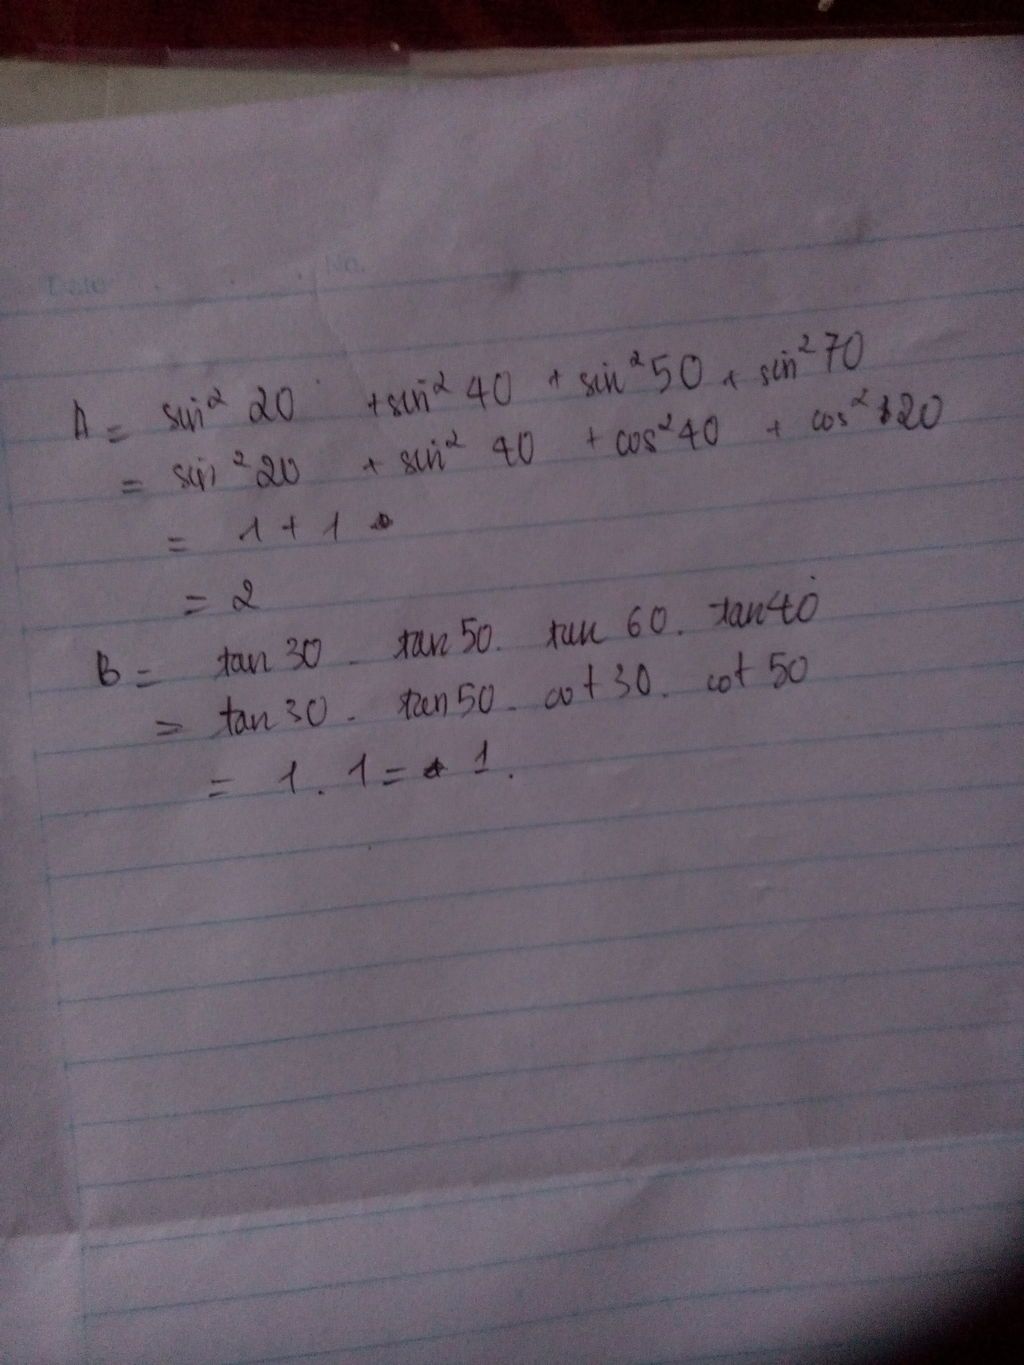 Date No.
A = sin² 20 + sin² 40 + sin² 50 + sin² 70
= sin² 20 + sin² 40 + cos² 40 + cos² 20
= 1 + 1
= 2
B = tan 30 . tan 50 . tan 60 . tan 40
= tan 30 . tan 50 . cot 30 . cot 50
= 1 . 1 = 1 .